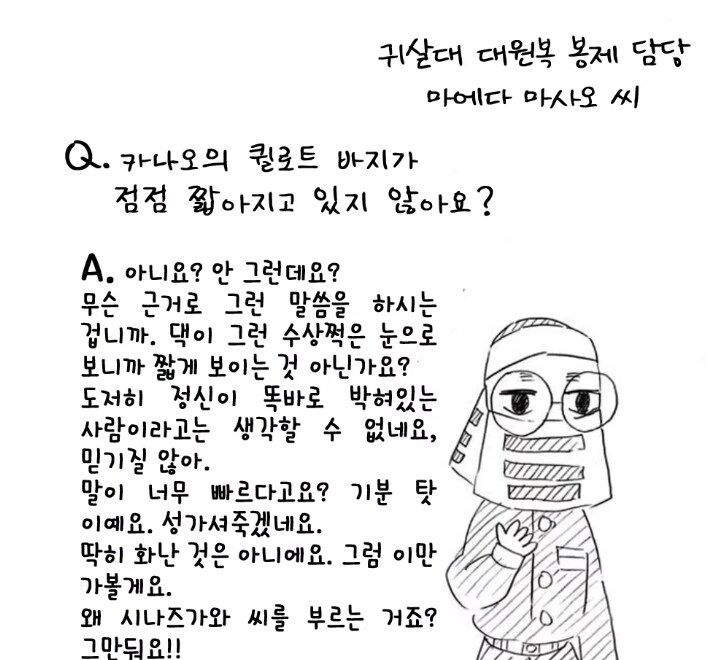 귀살대 대원복 봉제 담당
마에다 마사오 씨
Q. 카나오의 퀼로트 바지가
점점 짧아지고 있지 않아요?
A. 아니요? 안 그런데요?
무슨 근거로 그런 말씀을 하시는
겁니까. 댁이 그런 수상쩍은 눈으로
보니까 짧게 보이는 것 아닌가요?
도저히 정신이 똑바로 박혀있는
사람이라고는 생각할 수 없네요,
믿기질 않아.
말이 너무 빠르다고요? 기분 탓
이예요. 성가셔죽겠네요.
딱히 화난 것은 아니에요. 그럼 이만
가볼게요.
왜 시나즈가와 씨를 부르는 거죠?
그만둬요!!